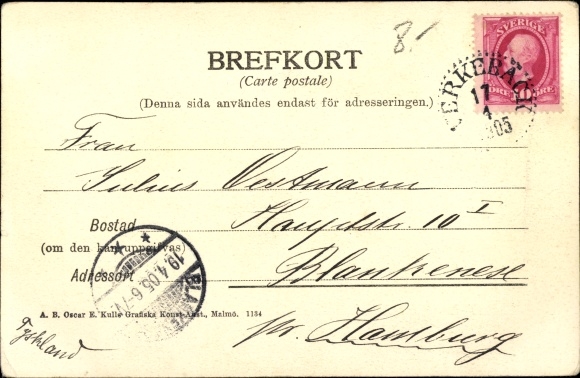 8.
SVERIGE
ÖRE 10 ÖRE
ERKEBÄCK
17
4
1905
BREFKORT
(Carte postale)
(Denna sida användes endast för adresseringen.)
Frau
Julius Oestmann
Bostad
Hauptstr. 10 I
(om den kan uppgifvas)
Blankenese
Adressort
19.4.05.6-7
BLAN
A. B. Oscar E. Kulls Grafiska Konst-Anst., Malmö. 1134
pr. Hamburg
Tyskland